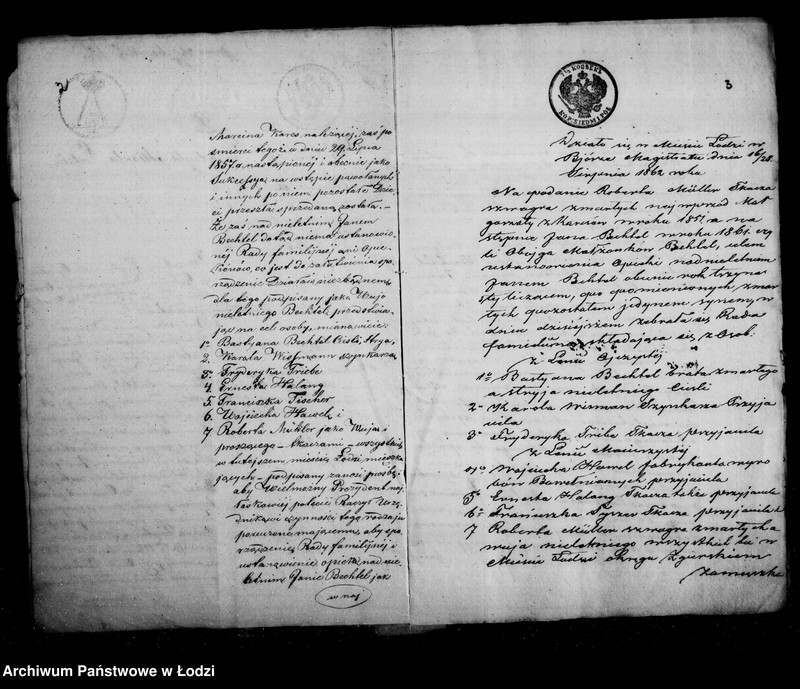 Marcina Karcs należącej, zaś po
śmierci tegoż w dniu 29 Lipca
1857 a nastąpionej i obecnie jako
Sukcessya na wstępie powołanych
i innych po niem pozostałe Dzie-
ci przeszła sprzedaną została. –
Że zaś nad nieletnim Janem
Bechtel dotąd niema ustanowio-
nej Rady familijnej ani Opie-
kunów, co jest do załatwienia spo-
rządzenie Działów niezbędnem,
dla tego podpisany jako Wuj
nieletniego Bechtel, przedstwia-
jąc na cel osoby, mianowicie:
1º Bastyana Bechtel Cieśli, Stryja,
2. Karola Wissmann szynkarza
3º Fryderyka Triebe
4 Ernesta Halang
5. Franciszka Fischer
6. Wojciecha Hawel, i
7 Roberta Müller jako Wuja i
proszącego – tkaczami – wszystkich
w tutejszem mieście Łodzi mieszka-
jących – podpisany zanosi prośbę
aby Wielmożny Prezydent naj-
łaskawiej polecić Raczył Urzę-
dnikowi czynności tego rodzaju
poruczone mającemu, aby spo-
rządzenie Rady familijnej i
ustanowienie opieki nad nie-
letnim Janie Bechtel jak
w naj
7½ КОПѢЕКЪ
KOP. SIEDM I PÓŁ
3
Działo się w Mieście Łodzi w
Biórze Magistratu dnia 16/28
Sierpnia 1862 roku
Na podanie Roberta Müller Tkacza
szwagra zmarłych najprzód Mał-
gorzaty z Karców w roku 1851. a na-
stępnie Jana Bechtel w roku 1861. czy-
li Obojga Małżonków Bechtel, celem
ustanowienia Opieki nad nieletnim
Janem Bechtel obecnie rok trzyna-
sty liczącem, po wspomnionych zmar-
łych pozostałem jedynem synem, w
dniu dzisiejszem zebrała się Rada
familijna składająca się z Osób.
z Linii Ojczystéj
1º Bastyana Bechtel brata zmarłego
a stryja nieletniego Cieśli
2º Karola Wisman Szynkarza Przyja-
ciela
3º Fryderyka Tribe Tkacza przyjaciela
z Linii Macierzystéj
4º Wojciecha Hawel fabrykanta wyro-
bów Bawełnianych przyjaciela
5º Ernesta Halang Tkacza także przyjaciela
6º Franciszka Fyszer Tkacza przyjaciela
7 Roberta Müllera szwagra zmarłych a
wuja nieletniego wszystkich tu w
Mieście Łodzi Okręgu Zgierskiem
zamieszka
Archiwum Państwowe w Łodzi